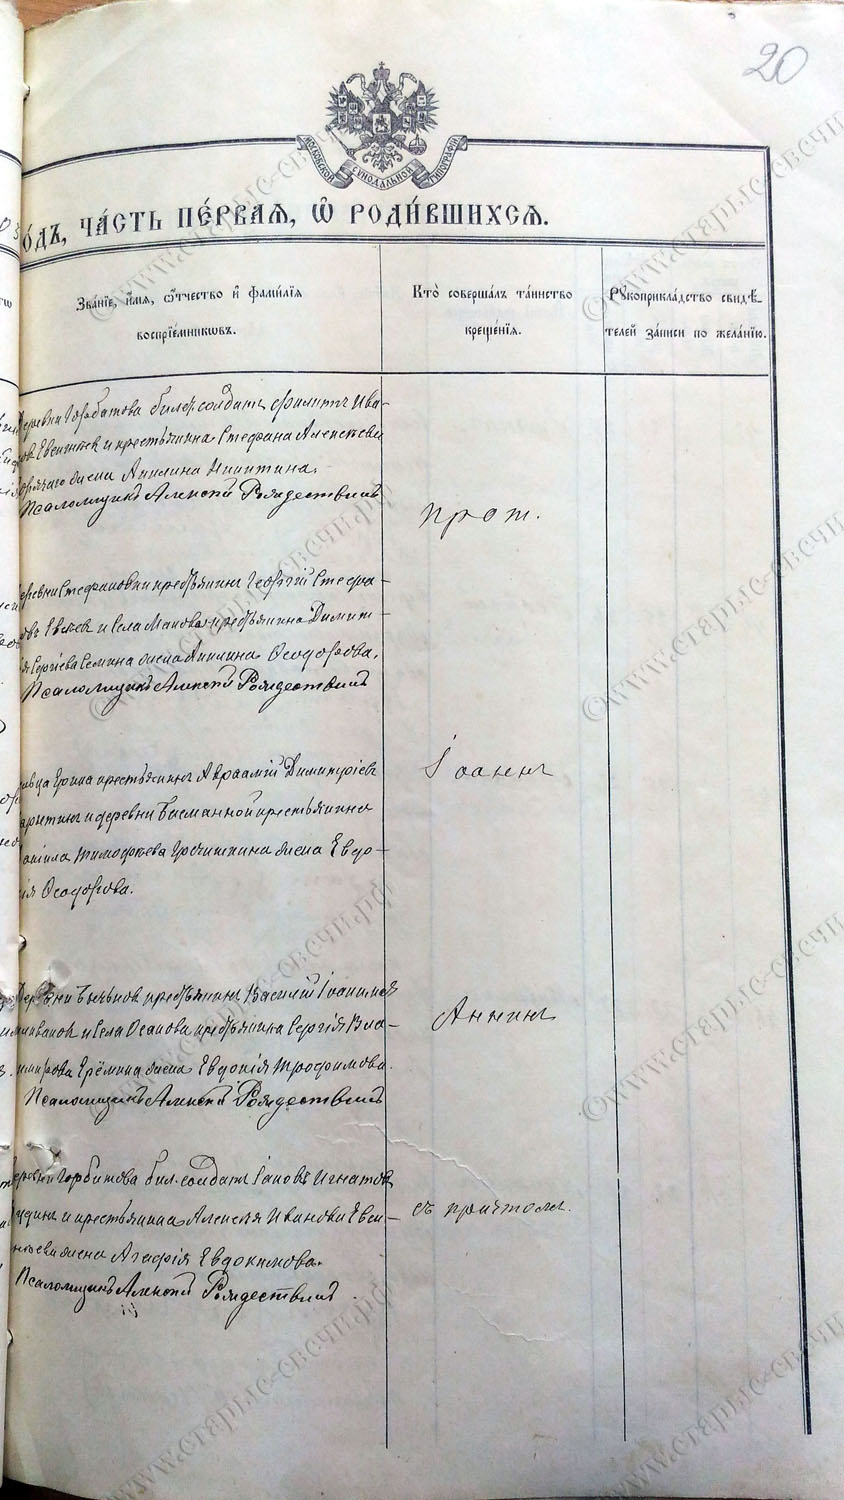 20
МОСКОВСКОЙ СѴНОДАЛЬНОЙ ТИПОГРАФІИ
О́ДЪ, ЧА́СТЬ ПЕ́РВАЯ, Ѡ҆ РОДИ́ВШИХСѦ.
Зва́нїе, и҆́мѧ, ѻ҆́тчество и҆ фами́лїѧ
воспрїе́мникѡвъ.
Кто̀ соверша́лъ та́инство
креще́нїѧ.
Рꙋкоприкла́дство свидѣ́-
телей за́писи по жела́нїю.
деревни Горбатова бил. солдатъ Филиппъ Ива-
и крестьянина Стефана Алексѣева
жена Акилина Никитина.
Псаломщикъ Алексѣй Рождественскій
прот.
деревни Стефановки крестьянинъ Георгій Стефа-
новъ и села Макова крестьянина Димит-
рія Сергіева Семина жена Акилина Ѳеодорова.
Псаломщикъ Алексѣй Рождественскій
крестьянинъ Авраамій Димитріевъ
и деревни Басманной крестьянина
Даніила Тимофѣева Гречишкина жена Евдо-
кія Ѳеодорова.
Іоаннъ
Деревни крестьянинъ Василій Іоанновъ
и села Осанова крестьянина Сергія Вла-
димірова Ерёмина жена Евдокія Трофимова.
Псаломщикъ Алексѣй Рождественскій
Аннинъ
деревни Горбатова бил. солдатъ Іаковъ Игнатов
и крестьянина Алексія Иванова Евси-
жена Агафія Евдокимова.
Псаломщикъ Алексѣй Рождественскій
съ причтомъ.
©www.старые-свечи.рф